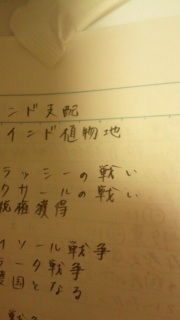 ンド支配
インド植物地
ラッシーの戦い
クサールの戦い
税権獲得
イソール戦争
ラータ戦争
国となる
戦